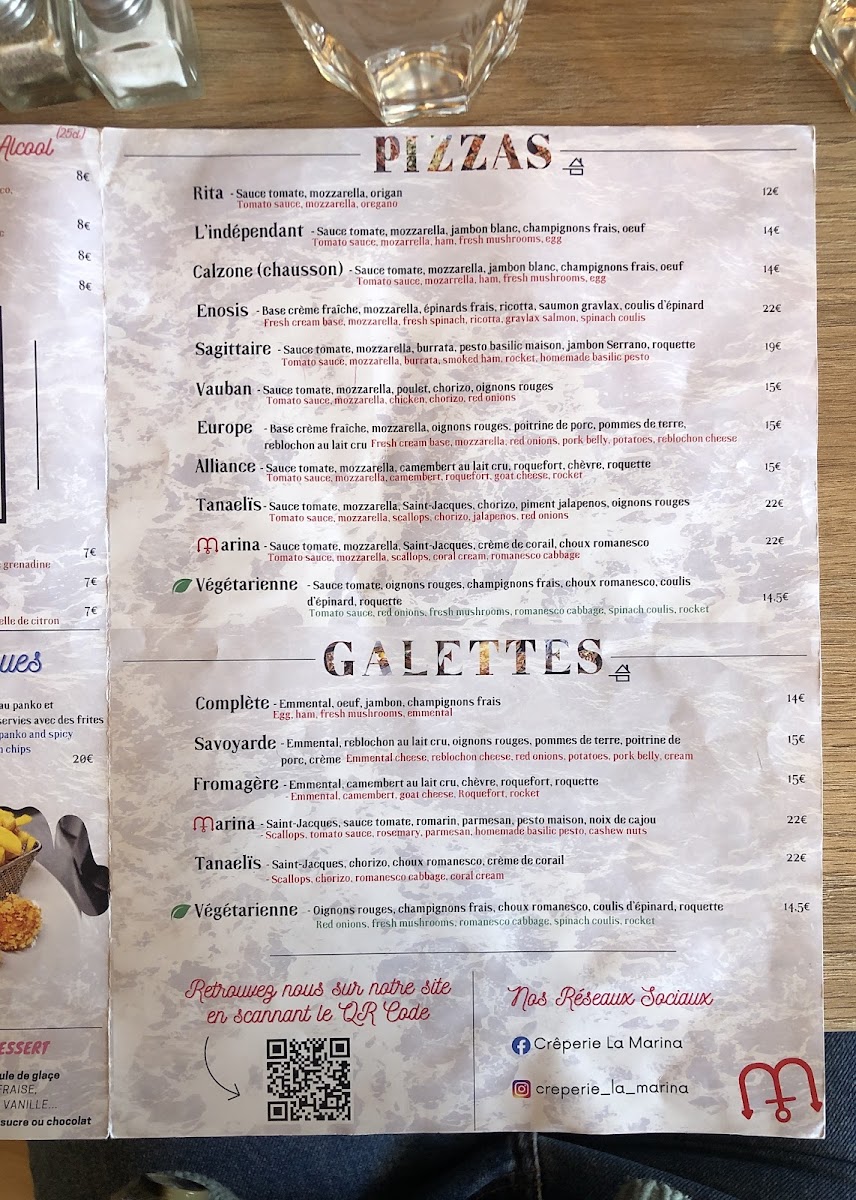 Alcool (25cl)
8€
co,
8€
8€
8€
7€
grenadine
7€
7€
elle de citron
ues
au panko et
servies avec des frites
panko and spicy
chips
20€
ESSERT
ule de glaçe
FRAISE,
VANILLE...
sucre ou chocolat
PIZZAS
Rita - Sauce tomate, mozzarella, origan 12€
Tomato sauce, mozzarella, oregano
L'indépendant - Sauce tomate, mozzarella, jambon blanc, champignons frais, oeuf 14€
Tomato sauce, mozarrella, ham, fresh mushrooms, egg
Calzone (chausson) - Sauce tomate, mozzarella, jambon blanc, champignons frais, oeuf 14€
Tomato sauce, mozarrella, ham, fresh mushrooms, egg
Enosis - Base crème fraîche, mozzarella, épinards frais, ricotta, saumon gravlax, coulis d'épinard 22€
Fresh cream base, mozzarella, fresh spinach, ricotta, gravlax salmon, spinach coulis
Sagittaire - Sauce tomate, mozzarella, burrata, pesto basilic maison, jambon Serrano, roquette 19€
Tomato sauce, mozzarella, burrata, smoked ham, rocket, homemade basilic pesto
Vauban - Sauce tomate, mozzarella, poulet, chorizo, oignons rouges 15€
Tomato sauce, mozzarella, chicken, chorizo, red onions
Europe - Base crème fraîche, mozzarella, oignons rouges, poitrine de porc, pommes de terre, 15€
reblochon au lait cru Fresh cream base, mozzarella, red onions, pork belly, potatoes, reblochon cheese
Alliance - Sauce tomate, mozzarella, camembert au lait cru, roquefort, chèvre, roquette 15€
Tomato sauce, mozzarella, camembert, roquefort, goat cheese, rocket
Tanaelïs - Sauce tomate, mozzarella, Saint-Jacques, chorizo, piment jalapenos, oignons rouges 22€
Tomato sauce, mozzarella, scallops, chorizo, jalapenos, red onions
Marina - Sauce tomate, mozzarella, Saint-Jacques, crème de corail, choux romanesco 22€
Tomato sauce, mozzarella, scallops, coral cream, romanesco cabbage
Végétarienne - Sauce tomate, oignons rouges, champignons frais, choux romanesco, coulis
d'épinard, roquette 14.5€
Tomato sauce, red onions, fresh mushrooms, romanesco cabbage, spinach coulis, rocket
GALETTES
Complète - Emmental, oeuf, jambon, champignons frais 14€
Egg, ham, fresh mushrooms, emmental
Savoyarde - Emmental, reblochon au lait cru, oignons rouges, pommes de terre, poitrine de 15€
porc, crème Emmental cheese, reblochon cheese, red onions, potatoes, pork belly, cream
Fromagère - Emmental, camembert au lait cru, chèvre, roquefort, roquette 15€
- Emmental, camembert, goat cheese, Roquefort, rocket
Marina - Saint-Jacques, sauce tomate, romarin, parmesan, pesto maison, noix de cajou 22€
- Scallops, tomato sauce, rosemary, parmesan, homemade basilic pesto, cashew nuts
Tanaelïs - Saint-Jacques, chorizo, choux romanesco, crème de corail 22€
- Scallops, chorizo, romanesco cabbage, coral cream
Végétarienne - Oignons rouges, champignons frais, choux romanesco, coulis d'épinard, roquette 14.5€
Red onions, fresh mushrooms, romanesco cabbage, spinach coulis, rocket
Retrouvez nous sur notre site
en scannant le QR Code
Nos Réseaux Sociaux
Crêperie La Marina
creperie_la_marina